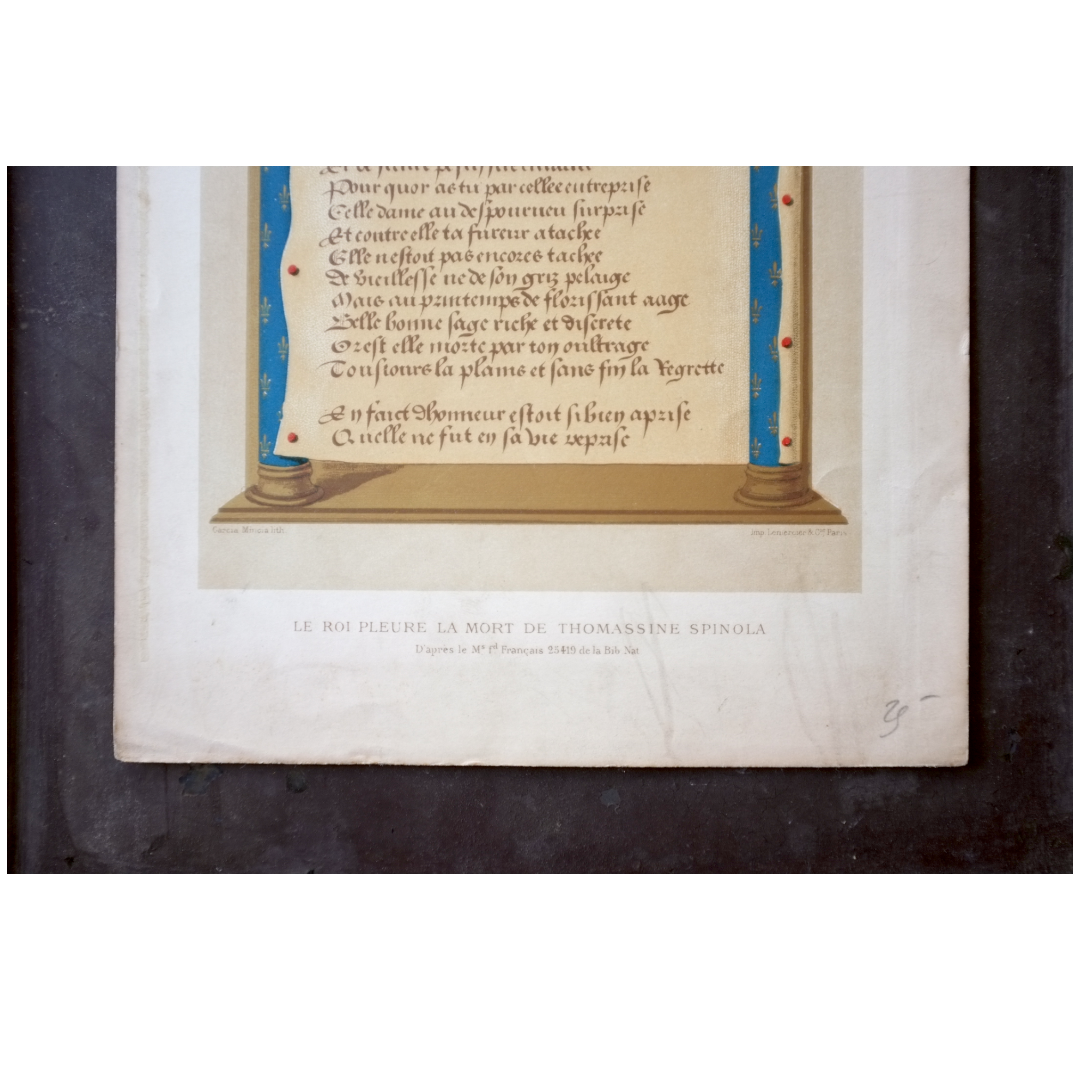 Pour quoy as tu par celle entreprise
Celle dame au despourueu surprise
Et contre elle ta fureur atachee
Elle nestoit pas encores tachee
De vieillesse ne de son griz pelaige
Mais au printemps de florissant aage
Belle bonne sage riche et discrete
Or est elle morte par ton oultrage
Tousiours la plains et sans fin la Regrette
En faict dhonneur estoit si bien aprise
Quelle ne fut en sa vie reprise
lith.
Imp. Lemercier & Cie Paris
LE ROI PLEURE LA MORT DE THOMASSINE SPINOLA
D'après le Ms fd Français 25419 de la Bib Nat